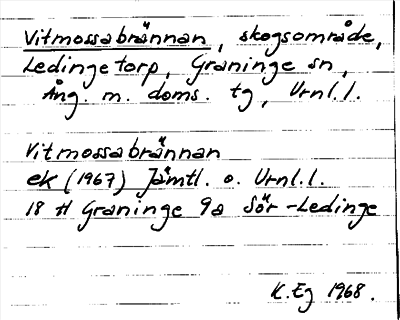 Vitmossabrännan, skogsområde,
Ledingetorp, Graninge sn,
Ång. m. doms. tg, Vrnl.l.
Vitmossabrännan
ek (1967) Jämtl. o. Vrnl.l.
18 H Graninge 9a Sör-Ledinge
K. Eg 1968.